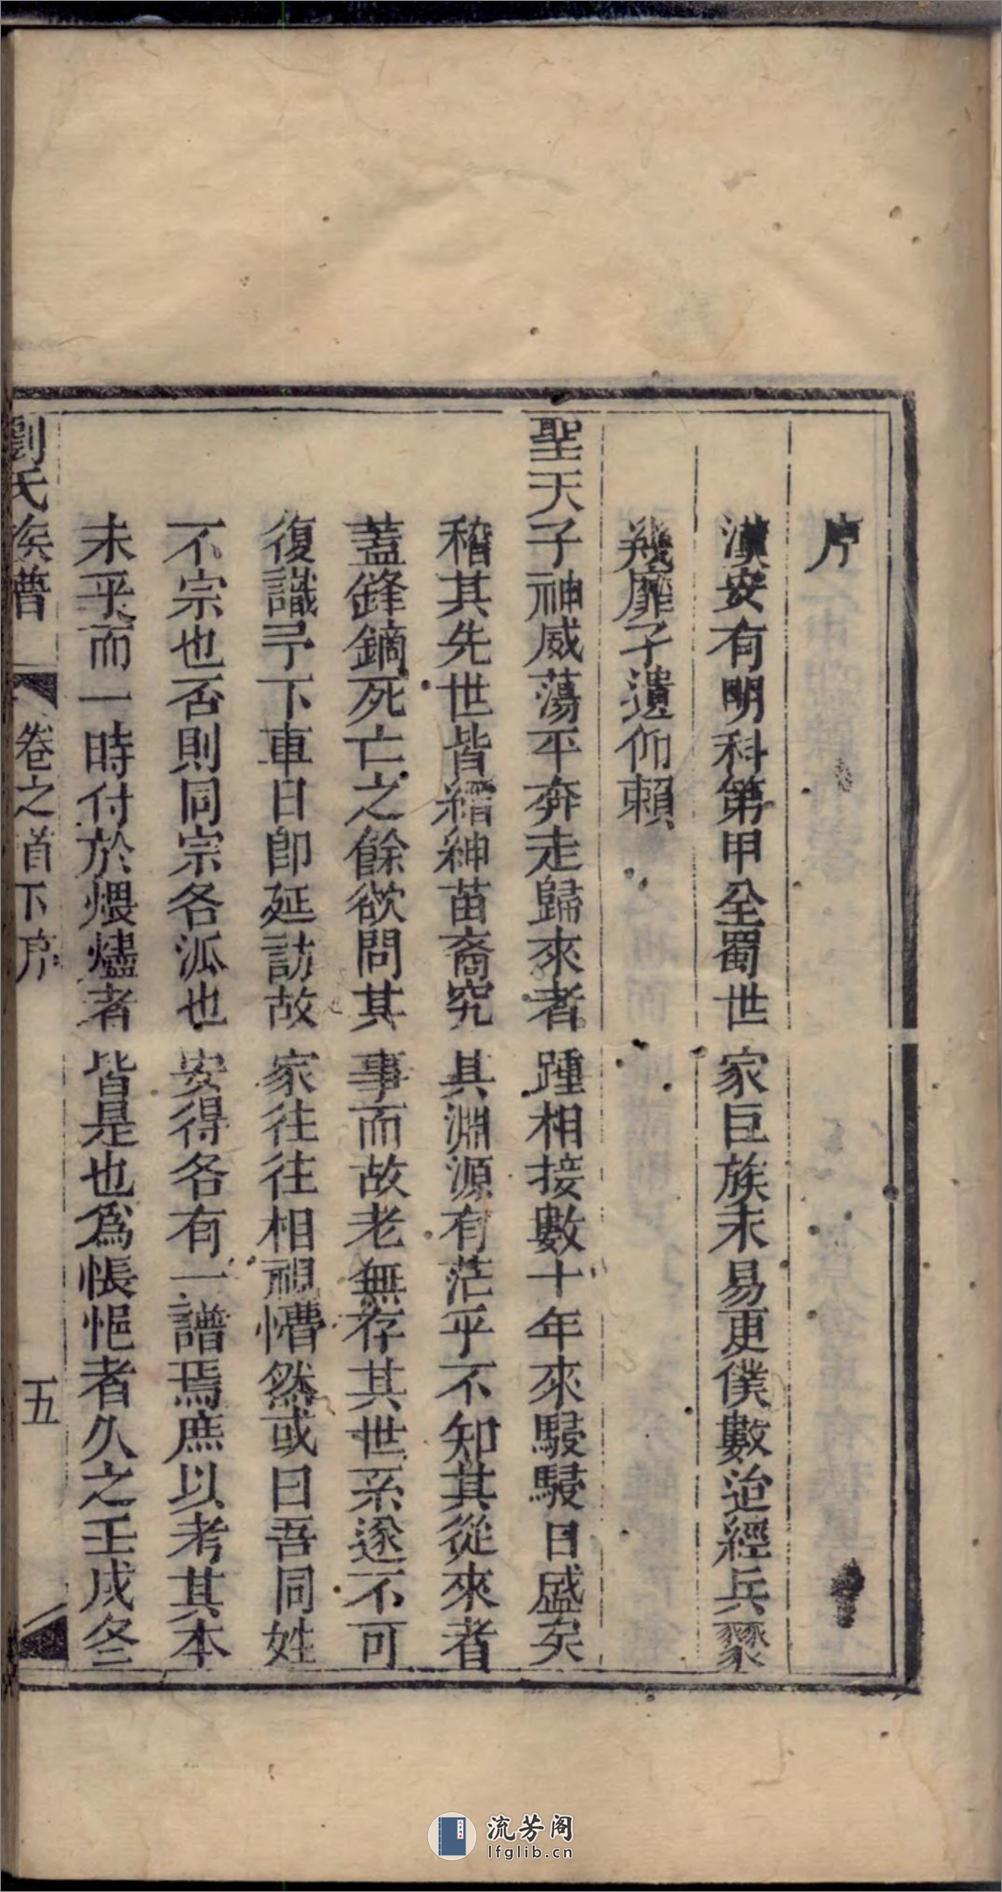 序
漢安有明科第甲全蜀世家巨族未易更僕數迨經兵燹
幾靡孑遺仰賴
聖天子神威蕩平奔走歸來者踵相接數十年來駸駸日盛矣
稽其先世皆縉紳苗裔究其淵源有茫乎不知其從來者
蓋鋒鏑死亡之餘欲問其事而故老無存其世系遂不可
復識予下車日卽延訪故家往往相視懵然或曰吾同姓
不宗也否則同宗各派也安得各有一譜焉庶以考其本
未乎而一時付於煨燼者皆是也爲悵悒者久之壬戌冬
劉氏族譜 卷之首下序 五
流芳阁
lfglib.cn